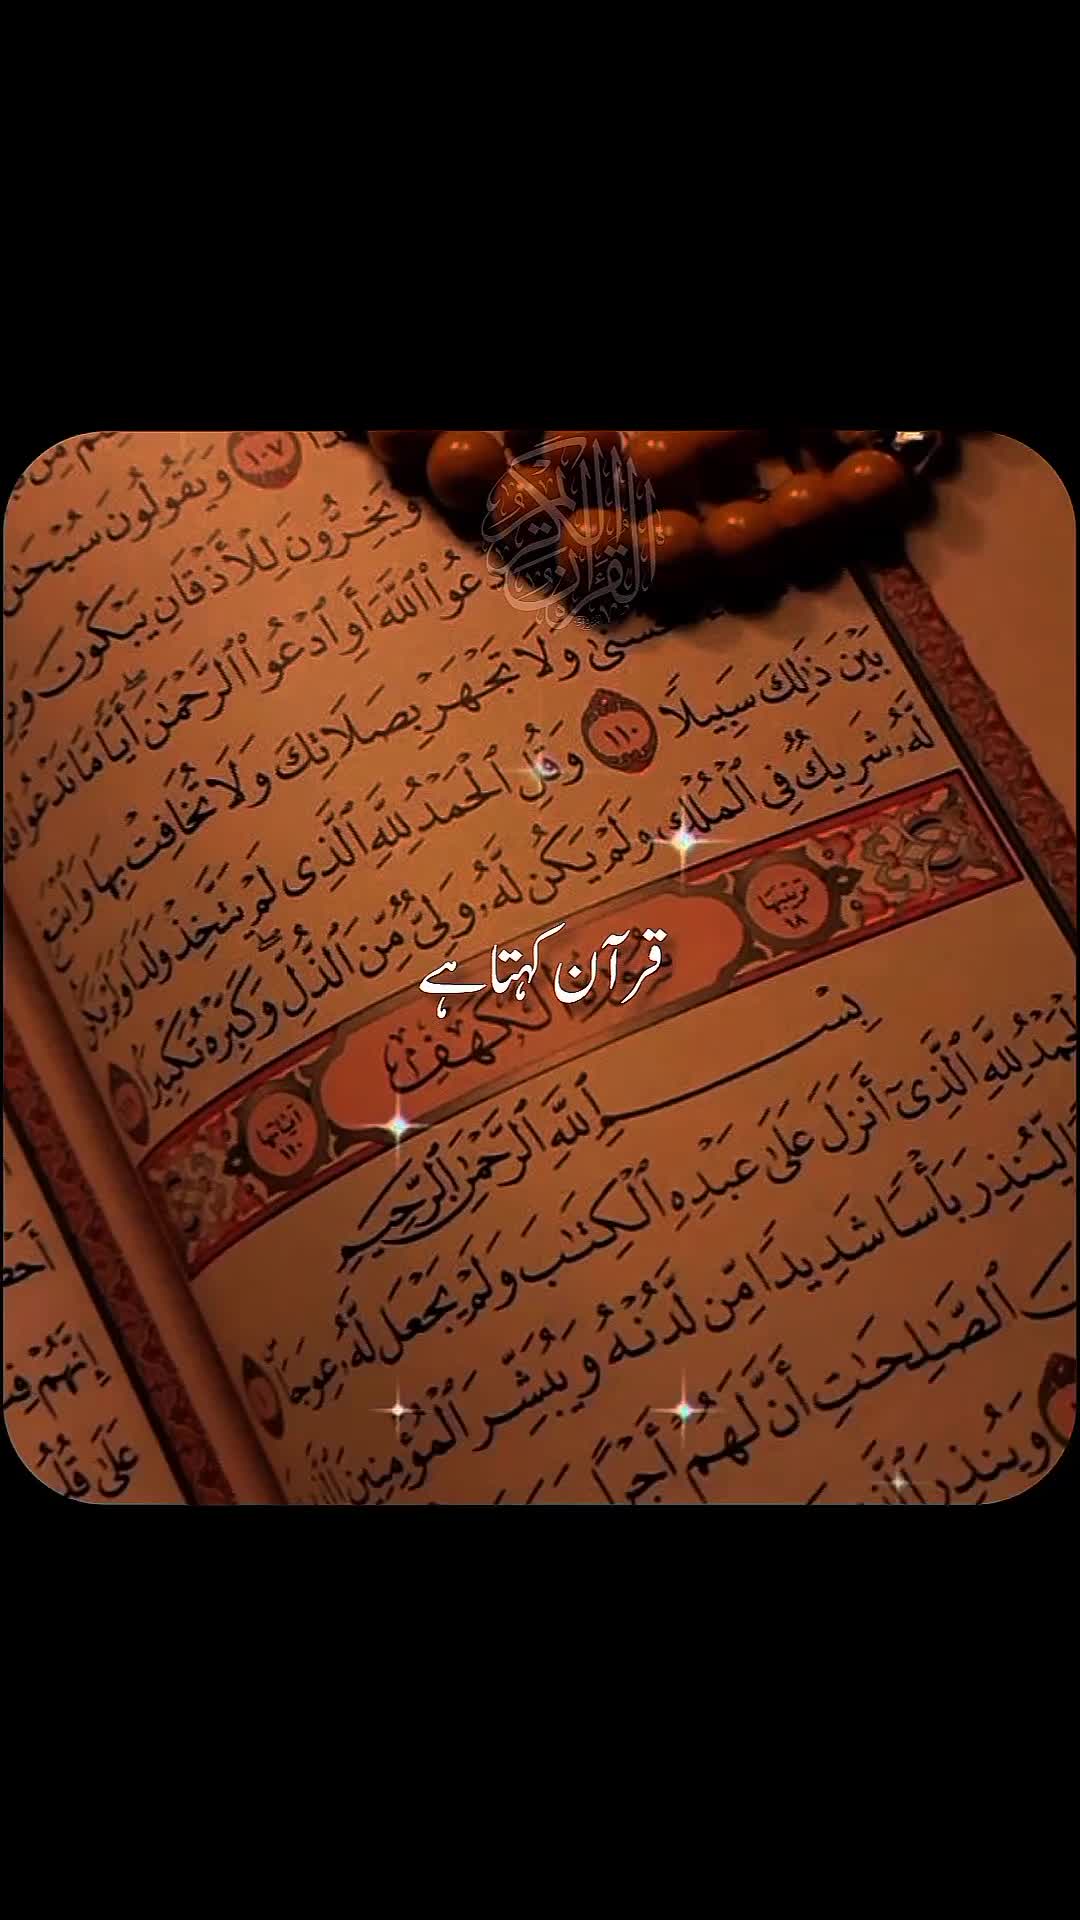 القرآن الكريم
١٠٧ وَيَقُولُونَ سُبْحَٰنَ
وَيَخِرُّونَ لِلْأَذْقَانِ يَبْكُونَ
ٱدْعُوا۟ ٱللَّهَ أَوِ ٱدْعُوا۟ ٱلرَّحْمَٰنَ ۖ أَيًّا مَّا تَدْعُوا۟
وَلَا تَجْهَرْ بِصَلَاتِكَ وَلَا تُخَافِتْ بِهَا وَٱبْتَغِ
بَيْنَ ذَٰلِكَ سَبِيلًا ١١٠ وَقُلِ ٱلْحَمْدُ لِلَّهِ ٱلَّذِى لَمْ يَتَّخِذْ وَلَدًا وَلَمْ يَكُن
لَّهُۥ شَرِيكٌ فِى ٱلْمُلْكِ وَلَمْ يَكُن لَّهُۥ وَلِىٌّ مِّنَ ٱلذُّلِّ ۖ وَكَبِّرْهُ تَكْبِيرًۢا
ترتيبها ١٨
سُورَةُ الكَهْفِ
آياتها ١١٠
قرآن کہتا ہے
بِسْمِ ٱللَّهِ ٱلرَّحْمَٰنِ ٱلرَّحِيمِ
ٱلْحَمْدُ لِلَّهِ ٱلَّذِىٓ أَنزَلَ عَلَىٰ عَبْدِهِ ٱلْكِتَٰبَ وَلَمْ يَجْعَل لَّهُۥ عِوَجَا
لِّيُنذِرَ بَأْسًا شَدِيدًا مِّن لَّدُنْهُ وَيُبَشِّرَ ٱلْمُؤْمِنِينَ
ٱلصَّٰلِحَٰتِ أَنَّ لَهُمْ أَجْرًا
وَيُنذِرَ
إِنَّهُمْ
عَلَىٰ